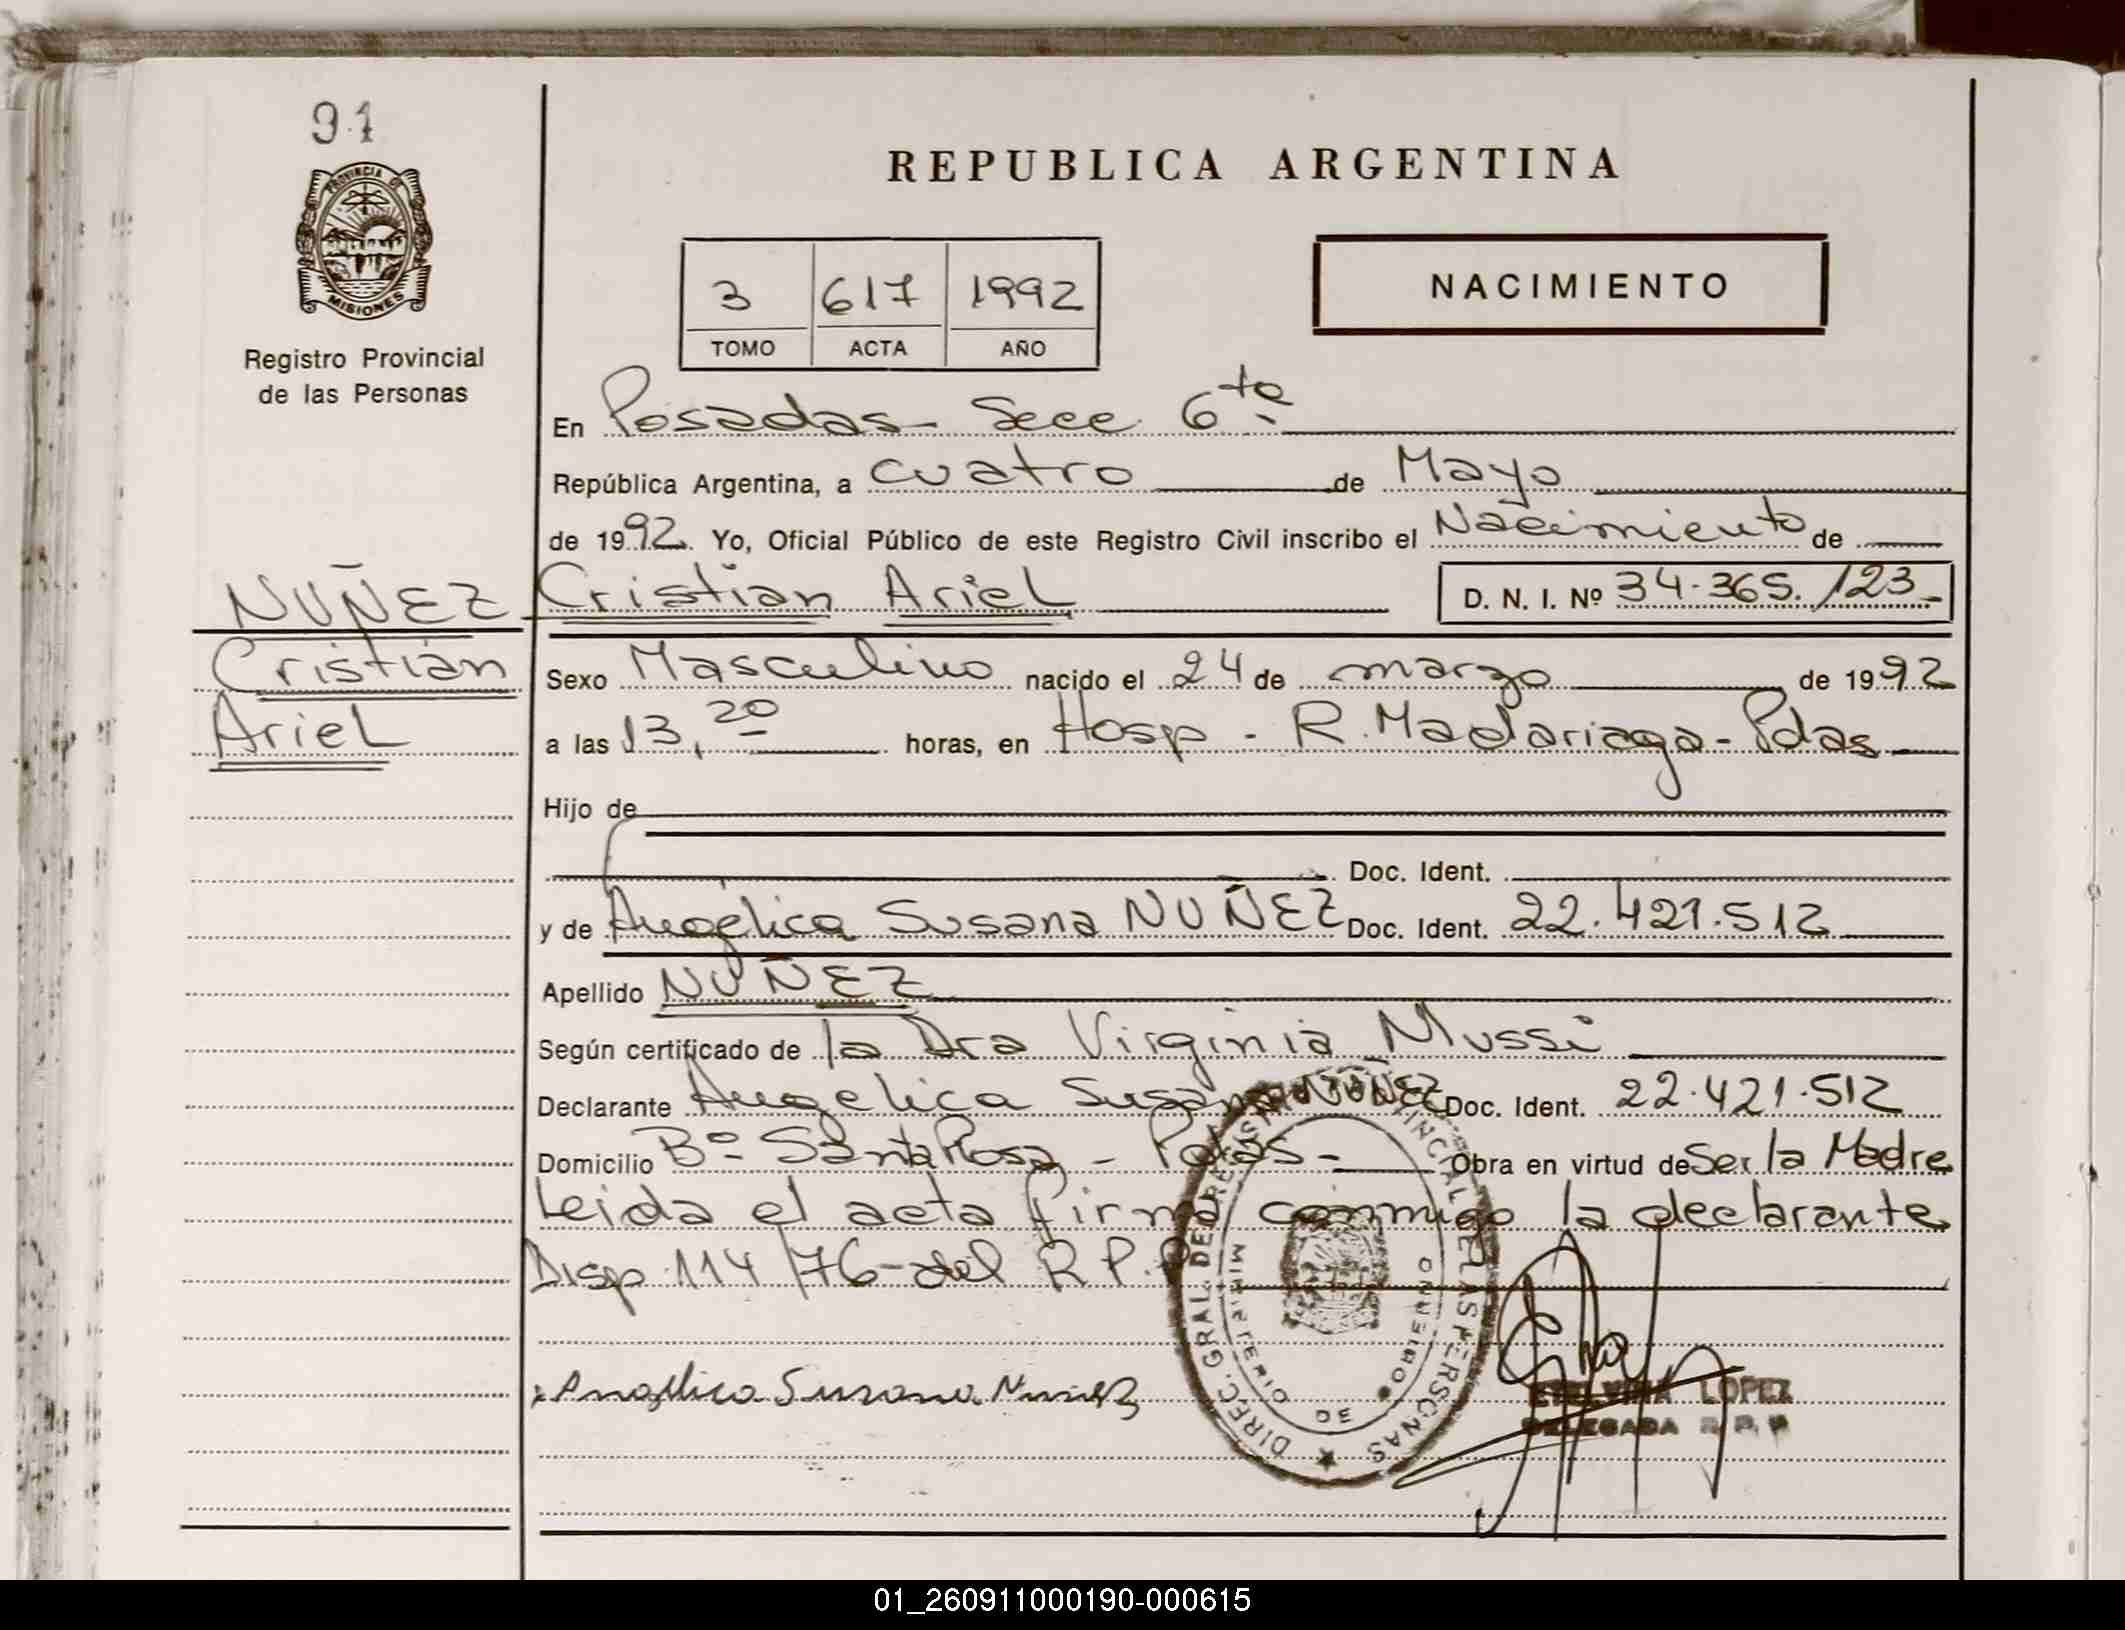 91
PROVINCIA DE
MISIONES
Registro Provincial
de las Personas
REPUBLICA ARGENTINA
3 617 1992
TOMO ACTA AÑO
NACIMIENTO
En Posadas - Secc 6ta
República Argentina, a cuatro de Mayo
de 1992. Yo, Oficial Público de este Registro Civil inscribo el Nacimiento de
NUÑEZ
Cristian
Ariel
Cristian Ariel D. N. I. Nº 34.365.123
Sexo Masculino nacido el 24 de marzo de 1992
a las 13,20 horas, en Hosp - R. Madariaga - Pdas
Hijo de
Doc. Ident.
y de Angélica Susana NUÑEZ Doc. Ident. 22.421.512
Apellido NUÑEZ
Según certificado de la Dra Virginia Mussi
Declarante Angelica Susana NUÑEZ Doc. Ident. 22.421.512
Domicilio Bº Santa Rosa - Pdas - Obra en virtud de Ser la Madre
Leida el acta firma conmigo la declarante
Disp. 114/76 - del R.P.P
Angelica Susana Nuñez
DIREC. GRAL. DE REGIST PROVINCIAL DE LAS PERSONAS
MINISTERIO DE GOBIERNO
ETELVINA LOPEZ
DELEGADA R. P. P
01_260911000190-000615